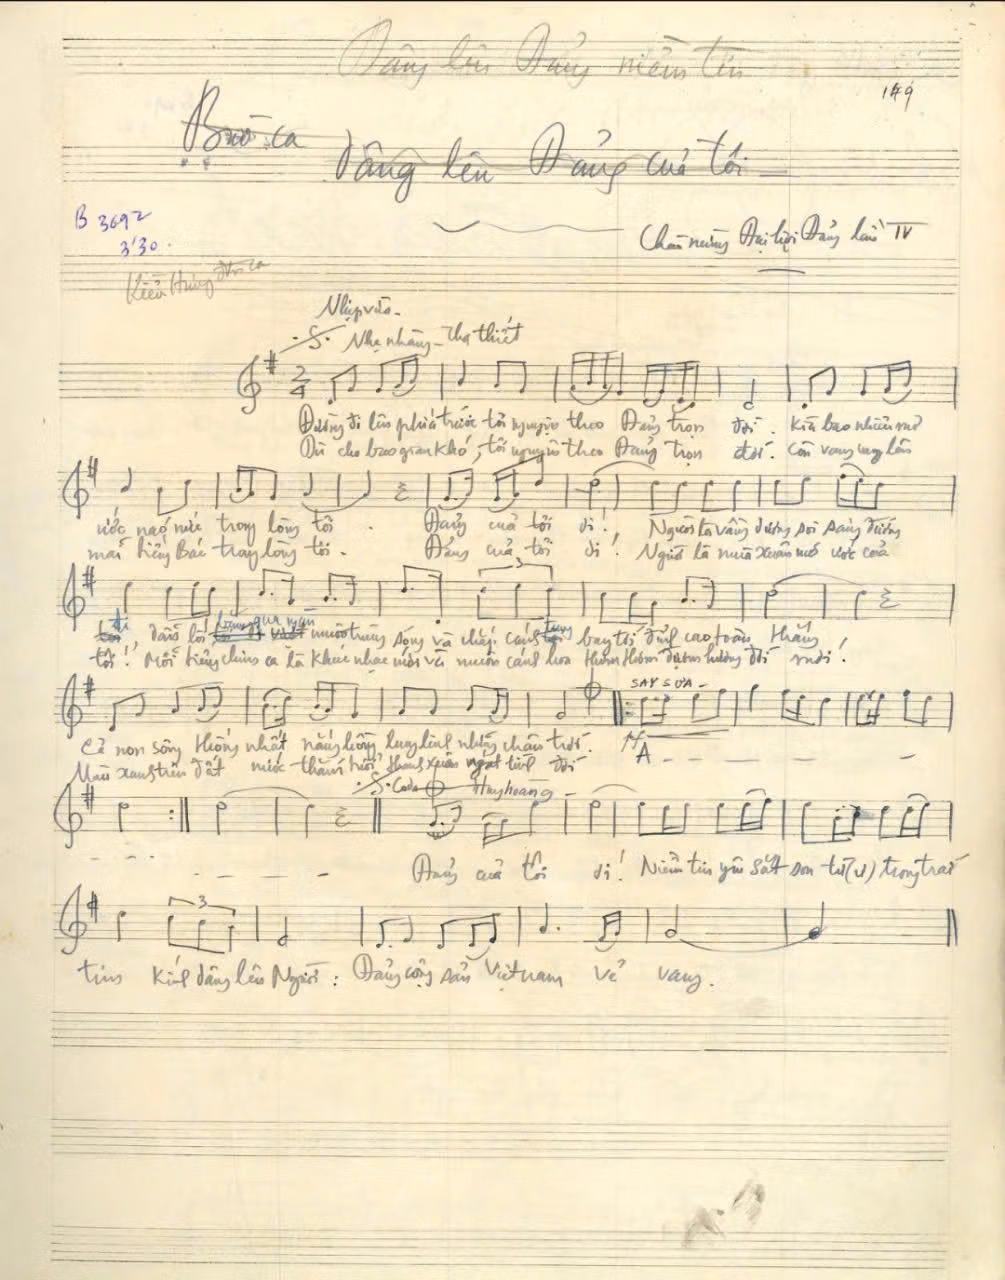 Dâng lên Đảng niềm tin
149
Bài ca
Dâng lên Đảng của tôi
B 3692
3'30
Chào mừng Đại hội Đảng lần IV
Kiều Hưng đơn ca
Nhịp vừa -
Nhẹ nhàng - Tha thiết
2
4
Đường đi lên phía trước tôi nguyện theo Đảng trọn đời. Kìa bao nhiêu mơ
Dù cho bao gian khó, tôi nguyện theo Đảng trọn đời. Còn vang vọng lên
ước nao nức trong lòng tôi. Đảng của tôi ơi! Người là vầng dương soi sáng đường
mãi tiếng Bác trong lòng tôi. Đảng của tôi ơi! Người là mùa xuân mơ ước của
đi băng qua ngàn tung
3
tôi, dẫn lối muôn trùng sóng và chắp cánh bay tới đỉnh cao toàn thắng!
tôi! Mỗi tiếng chim ca là khúc nhạc mới và muôn cánh hoa thơm thơm đượm hương đời mới!
SAY SƯA -
Cả non sông thống nhất nắng hồng lung linh những chân trời. A - - - - -
Màu xanh trên đất nước thắm tươi xuân ngát tình đời
Coda Huy hoàng -
Đảng của tôi ơi! Niềm tin yêu sắt son từ (ư) trong trái
3
tim kính dâng lên Người: Đảng cộng sản Việt nam vẻ vang.